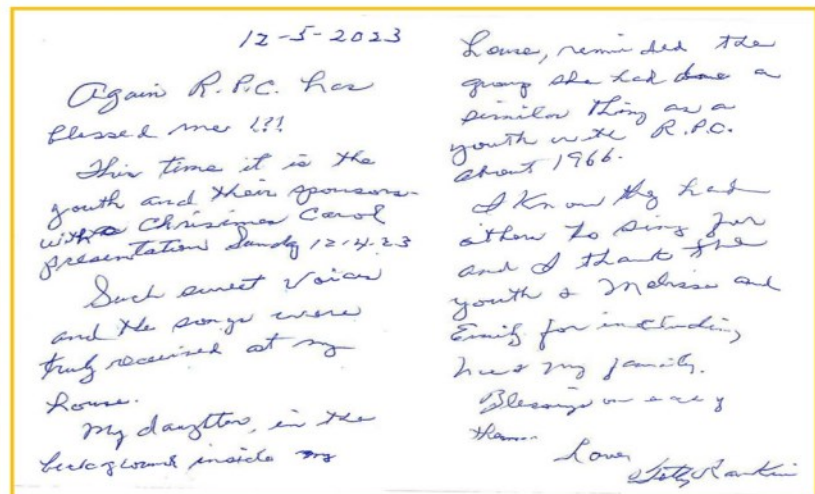 12-5-2023
Again R.P.C. has
blessed me !!!
This time it is the
youth and their sponsors-
with Chrisimes Carol
presentation Sundy 12.4.23
Such sweet voices
and the songs were
truly received at my
house.
My daughter, in the
background inside my
house, reminded the
group she had done a
similar thing as a
youth with R.P.C.
about 1966.
I know they had
others to sing for
and I thank the
youth & Melissa and
Emily for including
me & my family.
Blessings on each of
them.
Love,
Rankin